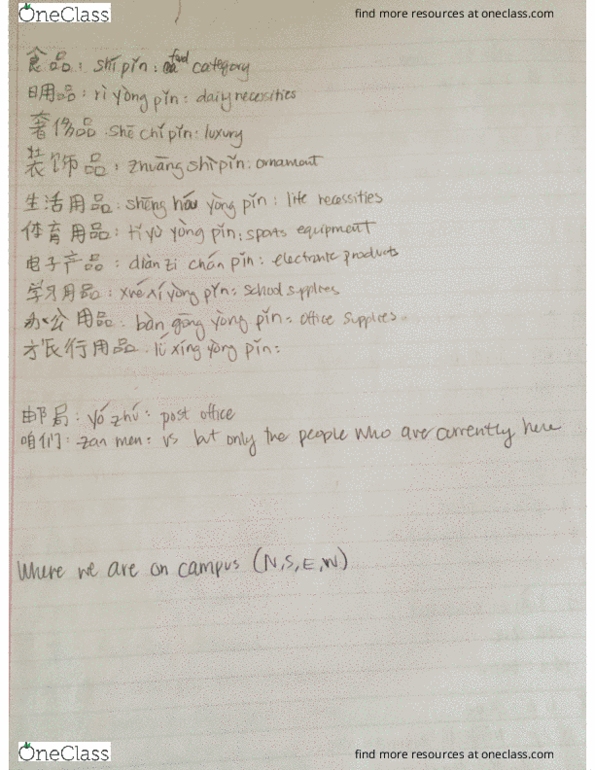 OneClass
find more resources at oneclass.com
食品: shí pǐn: food category
日用品: rì yòng pǐn: daily necosities
奢侈品. shē chǐ pǐn: luxury
装饰品: zhuāng shì pǐn: ornament
生活用品: shēng húo yòng pǐn: life necessities
体育用品: tǐ yù yòng pǐn: sports equipment
电子产品: diàn zi chǎn pǐn: electronic products
学习用品: xué xí yòng pǐn: school supplies
办公用品: bàn gōng yòng pǐn: office supplies
旅行用品. lǚ xíng yòng pǐn:
邮局: yó zhú: post office
咱们: zan men: us but only the people who are currently here
Where we are on campus (N,S,E,W)
OneClass
find more resources at oneclass.com